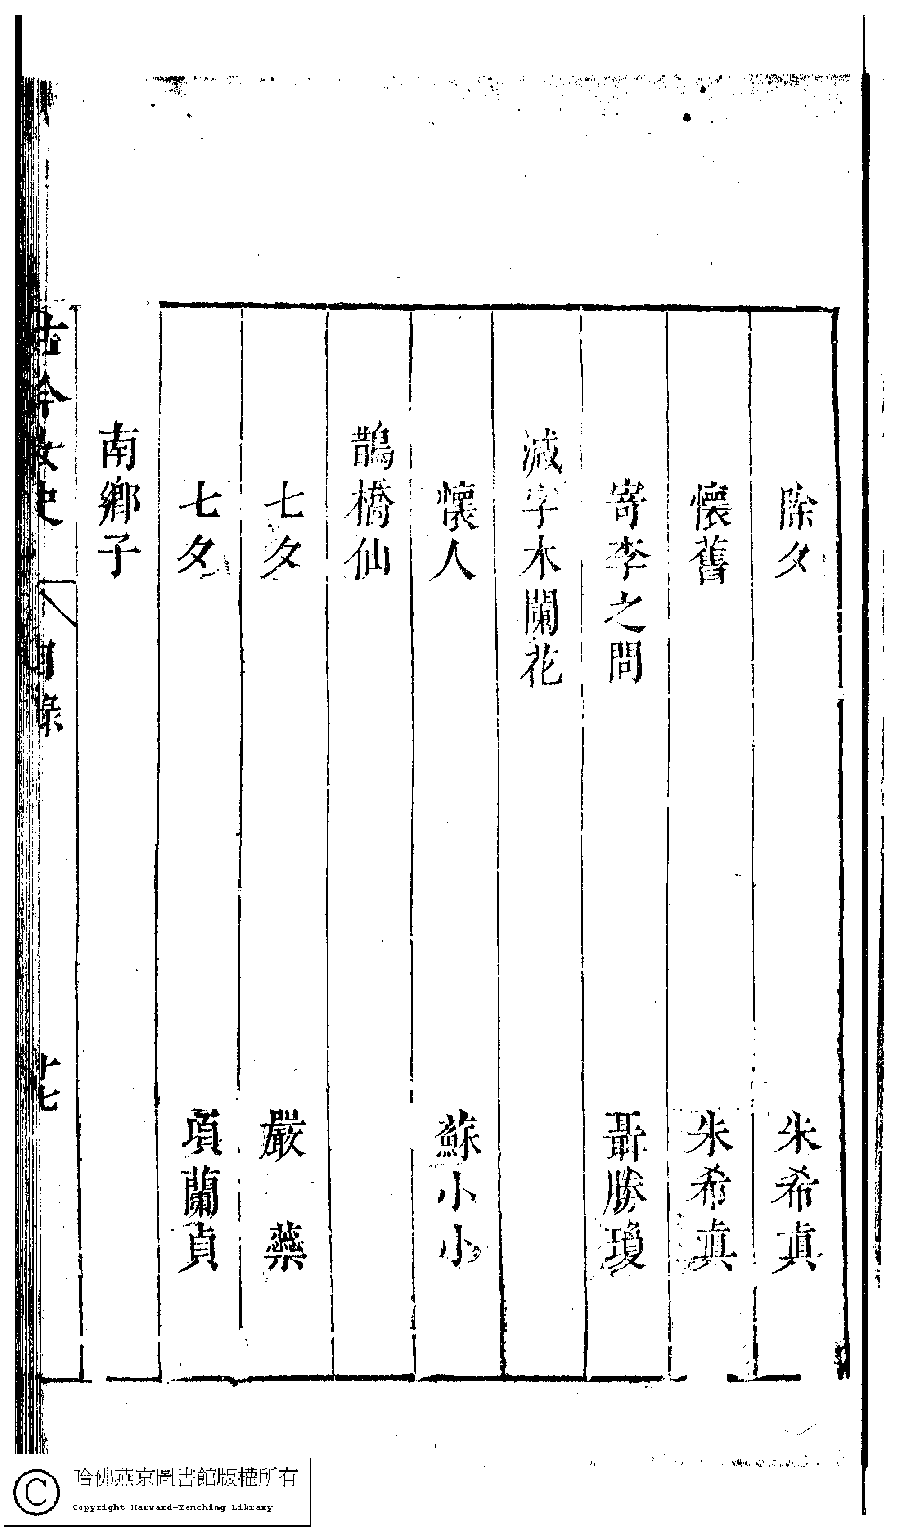 除夕 朱希真
懷舊 朱希真
寄李之問 聶勝瓊
減字木蘭花
懷人 蘇小小
鵲橋仙
七夕 嚴蘂
七夕 項蘭貞
南鄉子
古今女史 目錄 十七
哈佛燕京圖書館版權所有
Copyright Harvard-Yenching Library